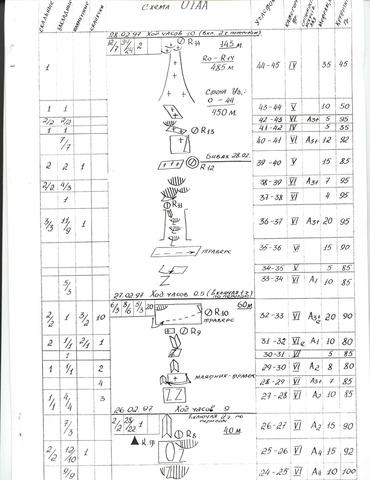 Схема УІАА
скальные
закладные
ледовые
скайхуки
участок
категор.
метраж, м
28.02.97 Ход часов 10
12/7 34/24 2
R14 145 м.
R0 – R14
485 м.
1
44-45 IV 35 45
Стена
0 – 44
450 м.
1 1
43-44 V 10 50
2/2 2/2
42-43 VI A3+ 5 95
R13
1 1
41-42 IV 5 35
7/7
40-41 VI A3+ 12 92
Бивак 28.02.
2 2 1
R12
39-40 VI 15 85
2/2 4/3
38-39 VI A3+ 7 95
1
37-38 VI 4 95
R11
3/3 11/9 1
36-37 VI A3+ 20 95
траверс
35-36 VI 15 90
34-35 V 5 85
5/3
33-34 VI A1 10 85
27.02.97 Ход часов 9.5
6/3 38/16 5/3 20
60м.
R10
траверс
2/2 1 3/2 10
32-33 VI A3+e 20 90
R9
2 1/1 2/1 1
31-32 VIe A1 10 80
1
30-31 VI 5 85
1 9/1 2
29-30 VI A2 8 80
маятник-траверс
4
28-29 VI A3+ 7 85
1/1 4/4 3
27-28 VI A2 10 85
26.02.97 Ход часов 9
2/2 28/22 1
R8 40 м.
7/3
26-27 VI A2 15 90
2/2 12/10 1
25-26 VI A4 15 92
9/9
24-25 VI A4 10 100